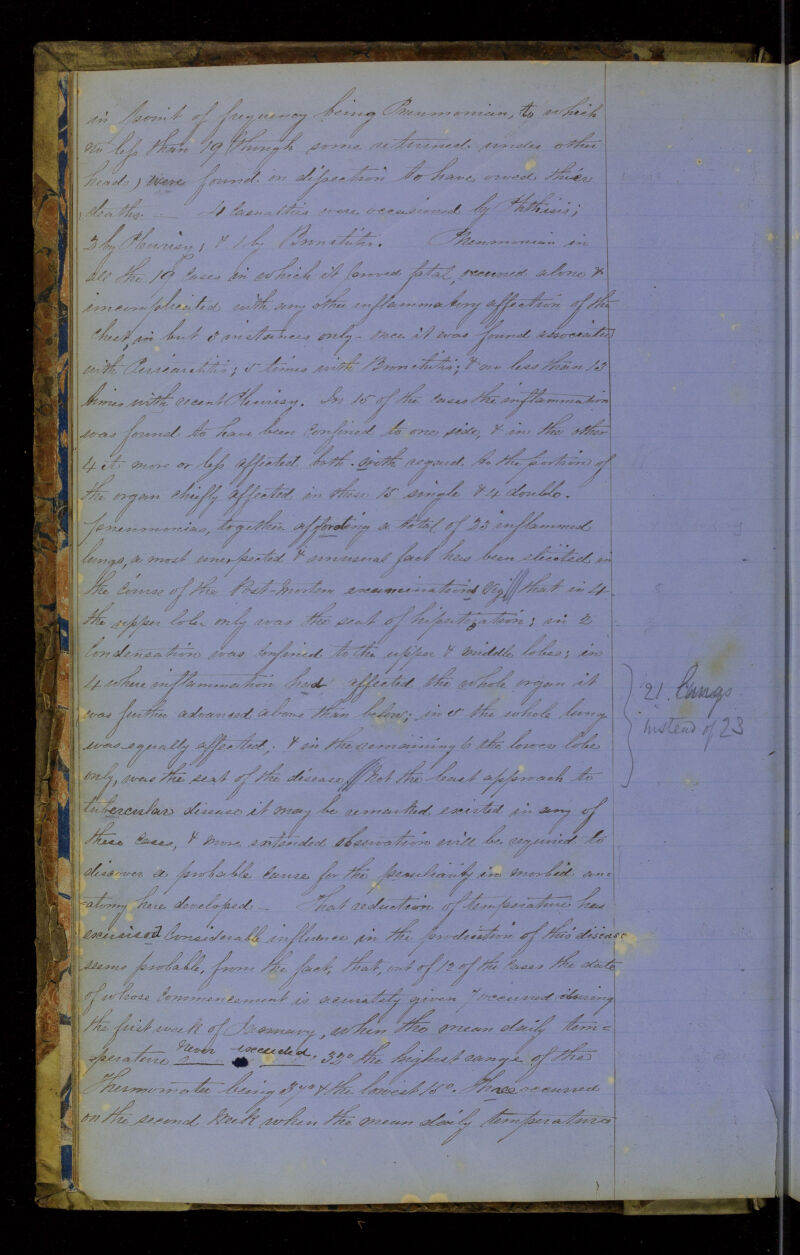 in point of frequency being Pneumonian, to which
no less than 19 (though some returned under other
head) were found on dissection to have owed their
deaths. 4 Casualties were occasioned by Phthisis;
3 by Pleurisy; & 1 by Bronchitis. Pneumonian in
all the 19 Cases in which it proved fatal, occurred alone &
uncomplicated with any other inflammatory affection of the
Chest, in but 5 instances only - once it was found associated
with Pericarditis; 5 times with Bronchitis; & no less than 13
times with recent Pleurisy. In 15 of the cases the inflammation
was found to have been confined to one side, & in the other
4 it more or less affected both. With regard to the portion of
the organ chiefly affected in these 15 single & 4 double.
pneumonias, together affording a total of 23 inflammed
lungs, a most unexpected & unusual fact has been elicited in
the course of the Post-Mortem examinations Viz // that in 4
the upper lobe only was the seat of hipatization; in 2
Condensation was confined to the upper & middle lobes; in
4 where inflammation had affected the whole organ it
was further advanced above than below; in 5 the whole lung
was equally affected; & in the remaining 6 the lower lobe
only, was the seat of the disease // Not the least approach to
tubercular disease it may be remarked, existed in any of
these cases, & more extended observation will be required to
discover a probable cause for the peculiarity in morbid an=
=atomy here developed - That reduction of temperature has
exercised Considerable influence in the production of this disease
seems probable, from the fact, that, out of 12 of the cases the date
of whose Commencement is accurately given 7 occurred during
the first week of January, when the mean daily tem=
perature never exceeded 32° the highest range of the
Thermometer being & the lowest 15°. occurred
on the second Week when the mean daily temperature
21 lungs
instead of 23